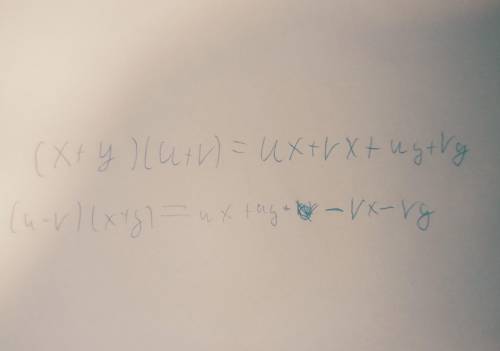 (x+y)(u+v)=ux+vx+uy+vy
(u-v)(x+y)=ux+uy-vx-vy